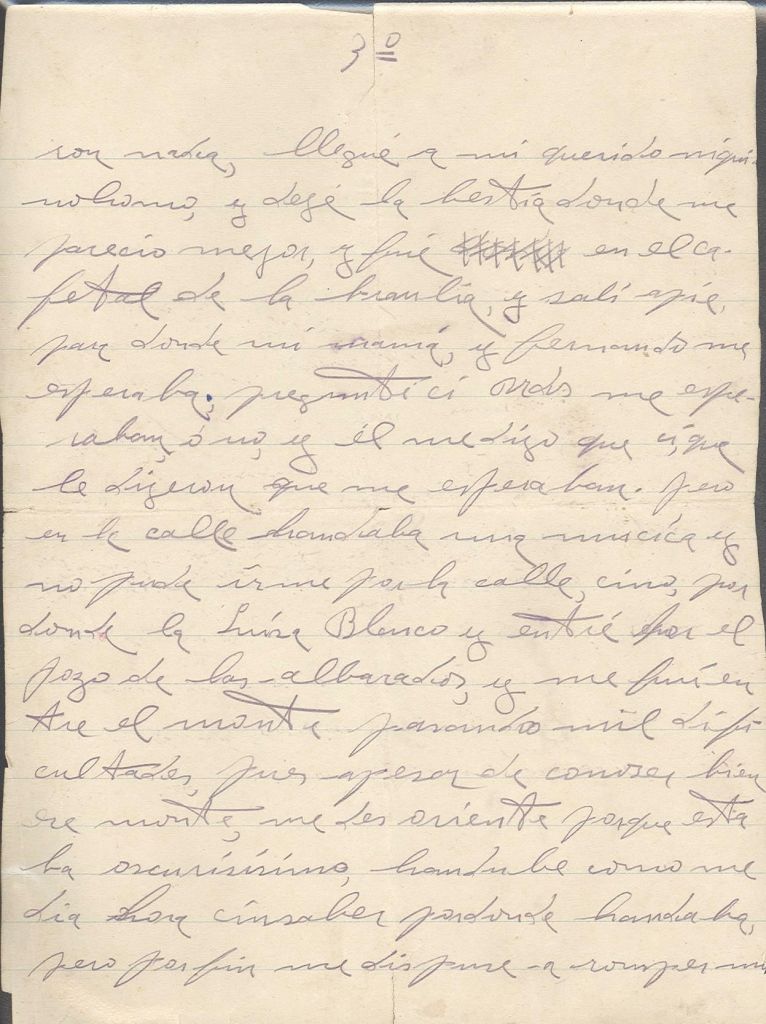 3º
ron nada, llegué a mi querido niqui-
nohomo, y dejé la bestia donde me
parecio mejor, y fué en el ca-
fetal de la braulia, y salí apie,
para donde mi mamá, y fernando me
esperaba, pregunté ci Uds me espe-
raban, ó no, y él me digo que cí, que
le digeron que me esperaban. pero
en la calle handaba una mucica y
no pude irme por la calle, cino, por
donde la Luisa Blanco y entré por el
pozo de las albarados, y me fuí en
tre el monte pasando mil difi
cultades, pues apesar de conoser bien
ese monte, me des oriente porque esta
ba oscurísisimo, handube como me
dia hora cinsaber pordonde handaba,
pero porfin me dispuse a romper